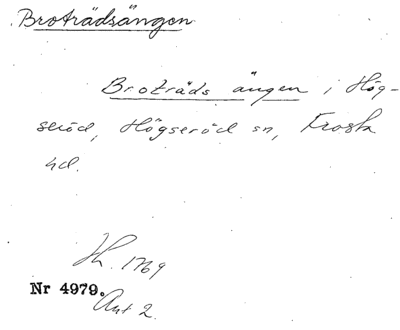 Broträdsängen
Broträds ängen i Hög-
seröd, Högseröd sn, Frosta
hd.
1769
Nr 4979.
Ant 2.